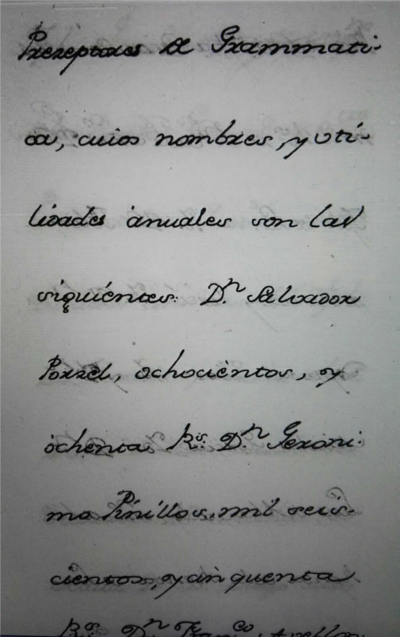 Prezeptores de Grammati-
ca, cuios nombres, y uti-
lidades anuales son las
siguientes: D.n Salvador
Porzel, ochocientos, y
ochenta R.s D.n Geroni-
mo Pinillos, mil seis-
cientos, y cinquenta
R.s D.n Fran.co